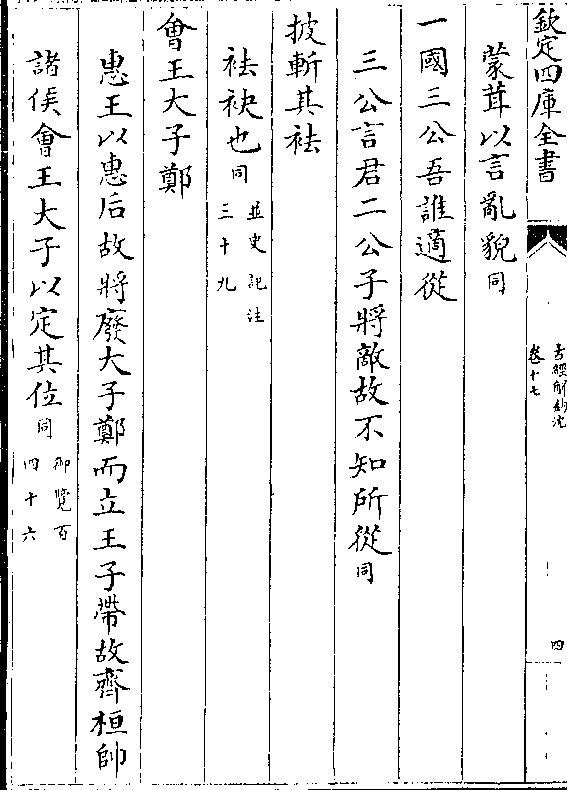 欽定四庫全書
古經解鈎沈
卷十七
四
蒙茸以言亂貌同
一國三公吾誰適從
三公言君二公子將敵故不知所從同
披斬其袪
袪袂也同
並史記注
三十九
會王大子鄭
惠王以惠后故將廢大子鄭而立王子帶故齊桓帥
諸侯會王大子以定其位同
御覽百
四十六